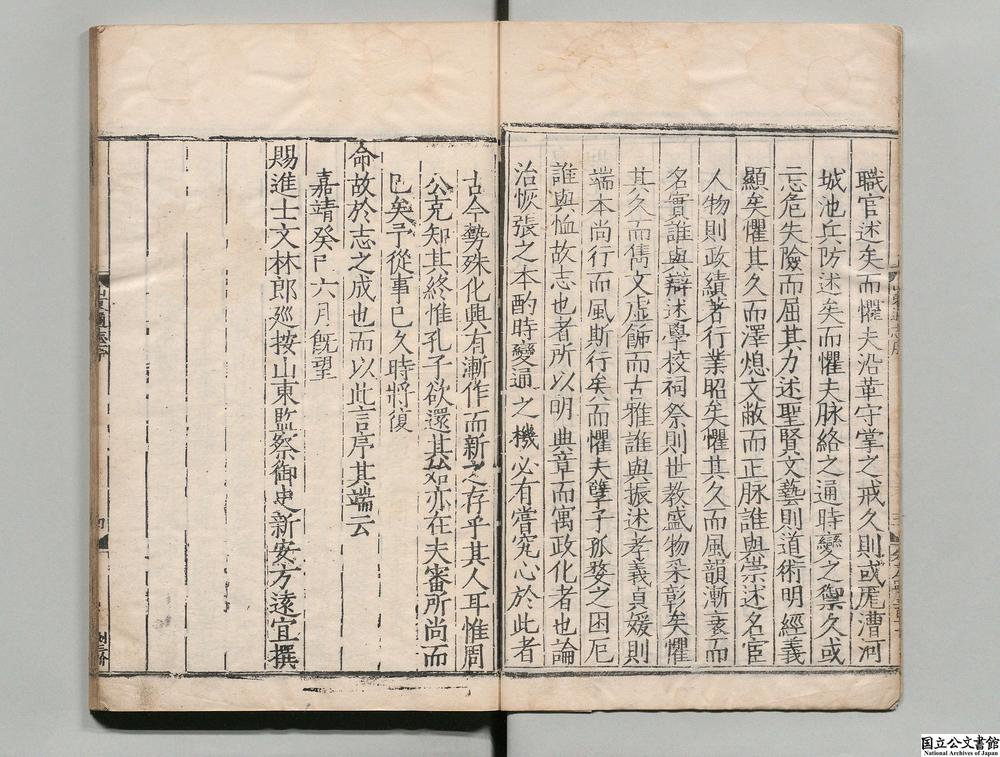 職官述矣而懼夫沿革守掌之戒久則或厖漕河
城池兵防述矣而懼夫脉絡之通時變之禦久或
忘危失險而屈其力述聖賢文藝則道術明經義
顯矣懼其久而澤熄文敝而正脉誰與崇述名宦
人物則政績著行業昭矣懼其久而風韻漸衰而
名實誰與辯述學校祠祭則世教盛物采彰矣懼
其久而雋文虛飾而古雅誰與振述孝義貞媛則
端本尚行而風斯行矣而懼夫孽子孤嫠之困厄
誰與恤故志也者所以明典章而寓政化者也論
治恢張之本酌時變通之機必有嘗究心於此者
古今勢殊化興有漸作而新之存乎其人耳惟周
公克知其終惟孔子欲還其始亦在夫審所尚而
已矣予從事已久時將復
命故於志之成也而以此言序其端云
嘉靖癸巳六月既望
賜進士文林郎巡按山東監察御史新安方遠宜撰
国立公文書館
National Archives of Japan